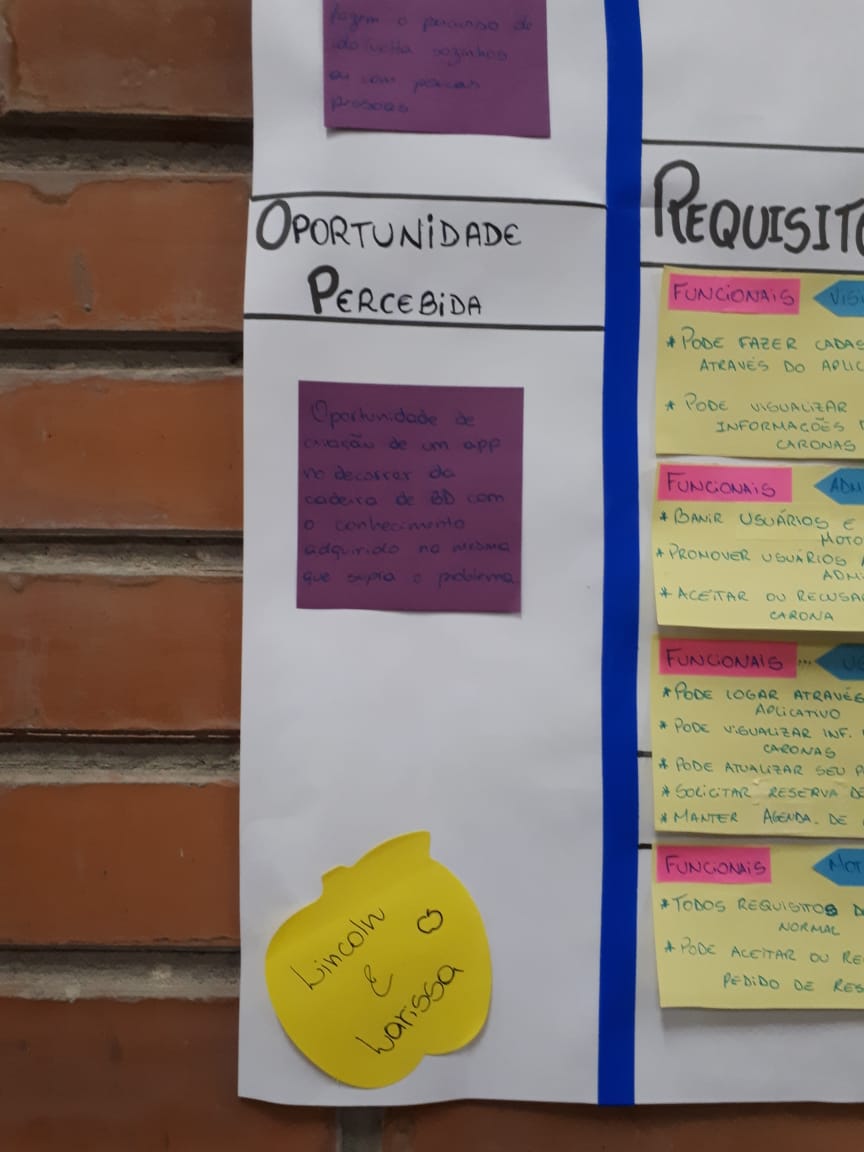 fazem o percurso de
ida/volta sozinhos
ou com poucas
pessoas
OPORTUNIDADE
PERCEBIDA
Oportunidade de
criação de um app
no decorrer da
cadeira de BD com
o conhecimento
adquirido na mesma
que supra o problema
Lincoln
E
Larissa
REQUISITO
FUNCIONAIS VISI
* PODE FAZER CADAS
ATRAVÉS DO APLIC
* PODE VISUALIZAR
INFORMAÇÕES D
CARONAS
FUNCIONAIS ADM
* BANIR USUÁRIOS E
MOTO
* PROMOVER USUÁRIOS A
ADMI
* ACEITAR OU RECUSA
CARONA
FUNCIONAIS ... US
* PODE LOGAR ATRAVÉS
APLICATIVO
* PODE VISUALIZAR INF.
CARONAS
* PODE ATUALIZAR SEU P
* SOLICITAR RESERVA DE
* MANTER AGENDA DE
FUNCIONAIS MOT
* TODOS REQUISITOS D
NORMAL
* PODE ACEITAR OU RE
PEDIDO DE RES